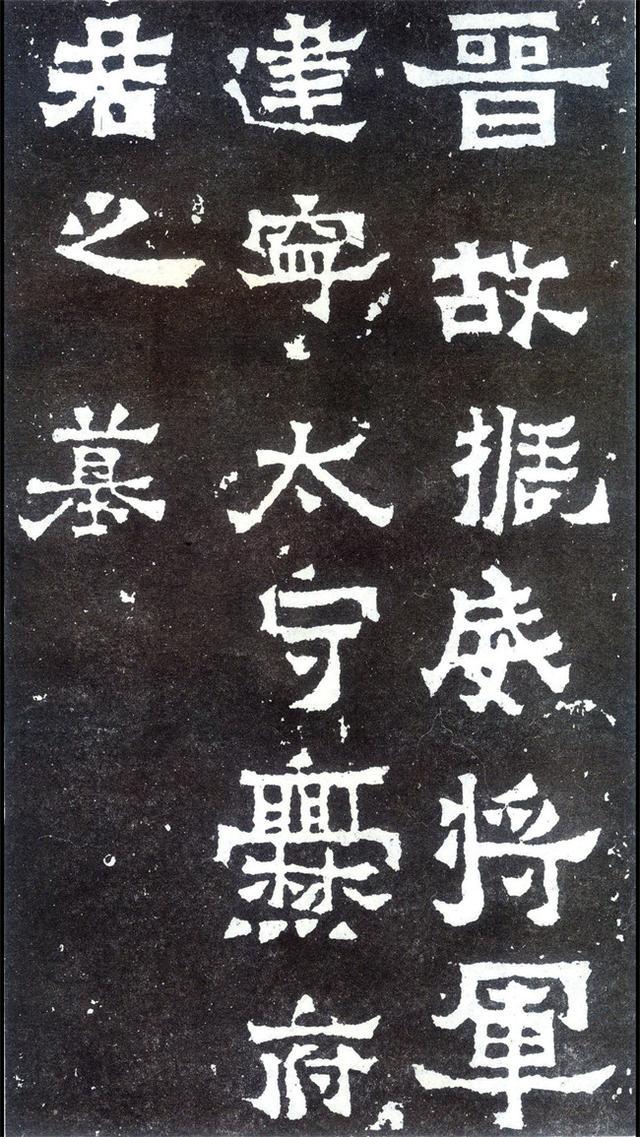 晉故振威将軍
建寧太守爨府
君之墓